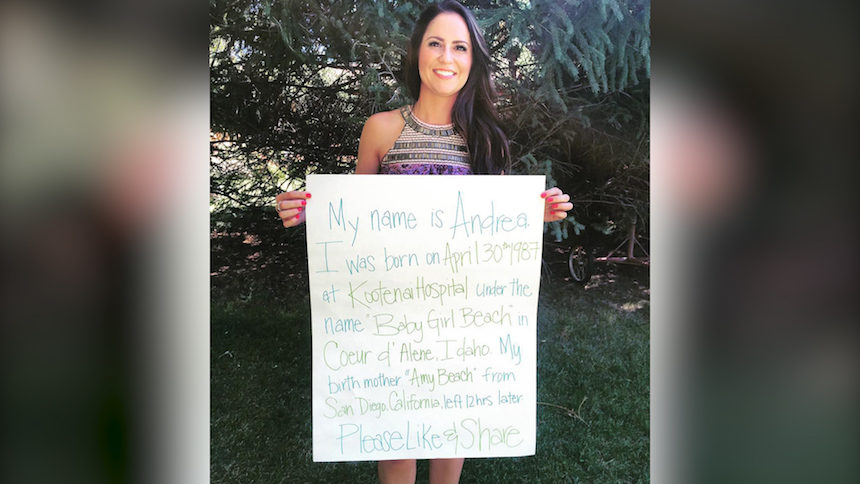 My name is Andrea.
I was born on April 30th 1987
at Kootenai Hospital under the
name "Baby Girl Beach" in
Coeur d'Alene, Idaho. My
birth mother "Amy Beach" from
San Diego, California, left 12hrs later
Please Like & Share